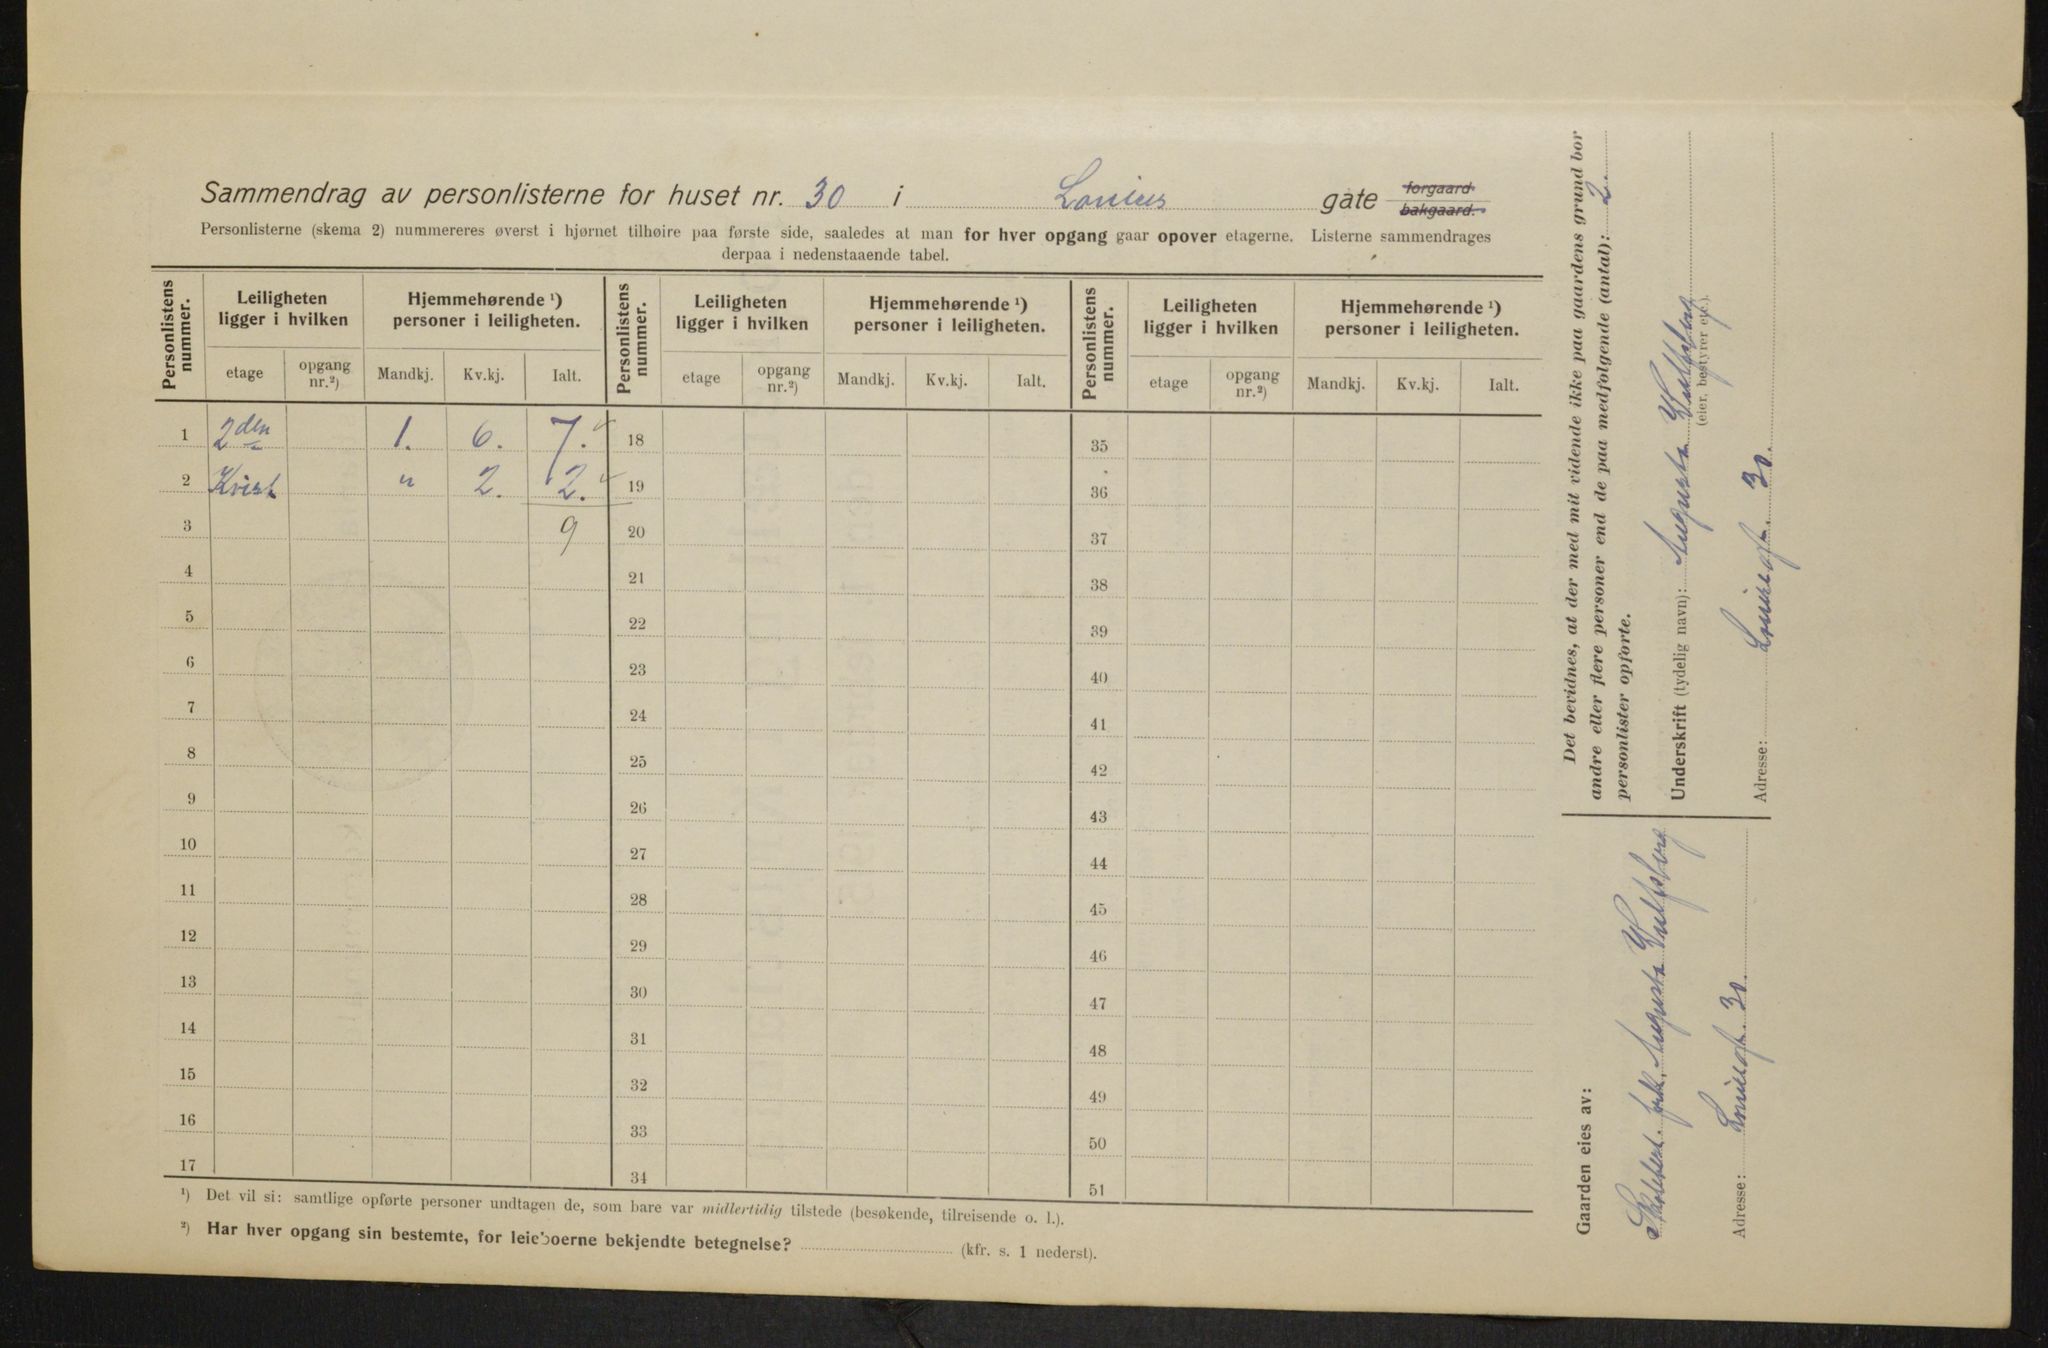 Sammendrag av personlisterne for huset nr. 30 i Louises gate forgaard. bakgaard.
Personlisterne (skema 2) nummereres øverst i hjørnet tilhøire paa første side, saaledes at man for hver opgang gaar opover etagerne. Listerne sammendrages
derpaa i nedenstaaende tabel.
Personlistens nummer.
Leiligheten ligger i hvilken
Hjemmehørende ¹) personer i leiligheten.
Personlistens nummer.
Leiligheten ligger i hvilken
Hjemmehørende ¹) personer i leiligheten.
Personlistens nummer.
Leiligheten ligger i hvilken
Hjemmehørende ¹) personer i leiligheten.
etage opgang nr.²) Mandkj. Kv.kj. Ialt. etage opgang nr.²) Mandkj. Kv.kj. Ialt. etage opgang nr.²) Mandkj. Kv.kj. Ialt.
1 2den 1. 6. 7. 18 35
2 Kvist " 2. 2. 19 36
3 9 20 37
4 21 38
5 22 39
6 23 40
7 24 41
8 25 42
9 26 43
10 27 44
11 28 45
12 29 46
13 30 47
14 31 48
15 32 49
16 33 50
17 34 51
¹) Det vil si: samtlige opførte personer undtagen de, som bare var midlertidig tilstede (besøkende, tilreisende o. l.).
²) Har hver opgang sin bestemte, for leieboerne bekjendte betegnelse? (kfr. s. 1 nederst).
Det bevidnes, at der med mit vidende ikke paa gaardens grund bor
andre eller flere personer end de paa medfølgende (antal): 2.
personlister opførte.
Underskrift (tydelig navn): Augusta Wulfsberg
(eier, bestyrer etc.).
Adresse: Louisegt. 30.
Gaarden eies av:
frk. Augusta Wulfsberg
Adresse: Louisegt. 30.